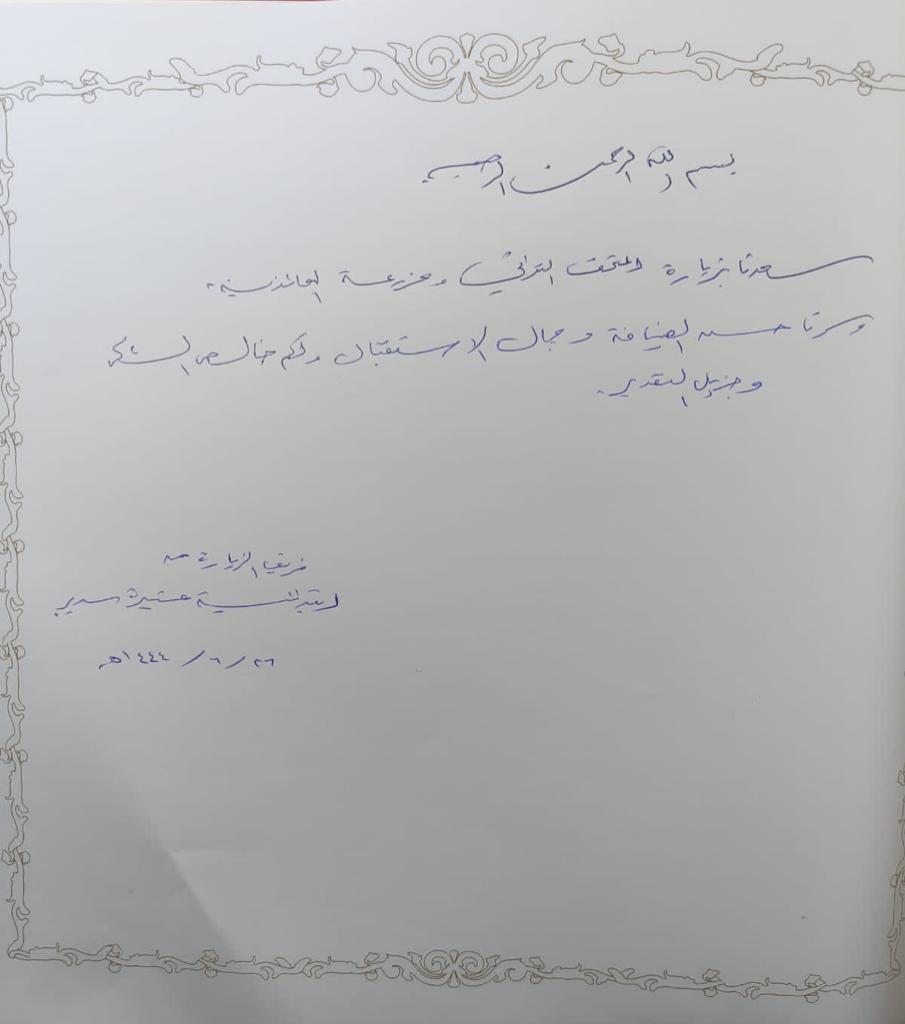 بسم الله الرحمن الرحيم
سعدنا بزيارة المتحف التراثي ومزرعة
وسرنا حسن الضيافة وجمال الاستقبال ولكم خالص الشكر
وجزيل التقدير.
فريق الزيارة من
ابتدائية عشيرة سدير
٢٦ / ٦ / ١٤٤٤هـ